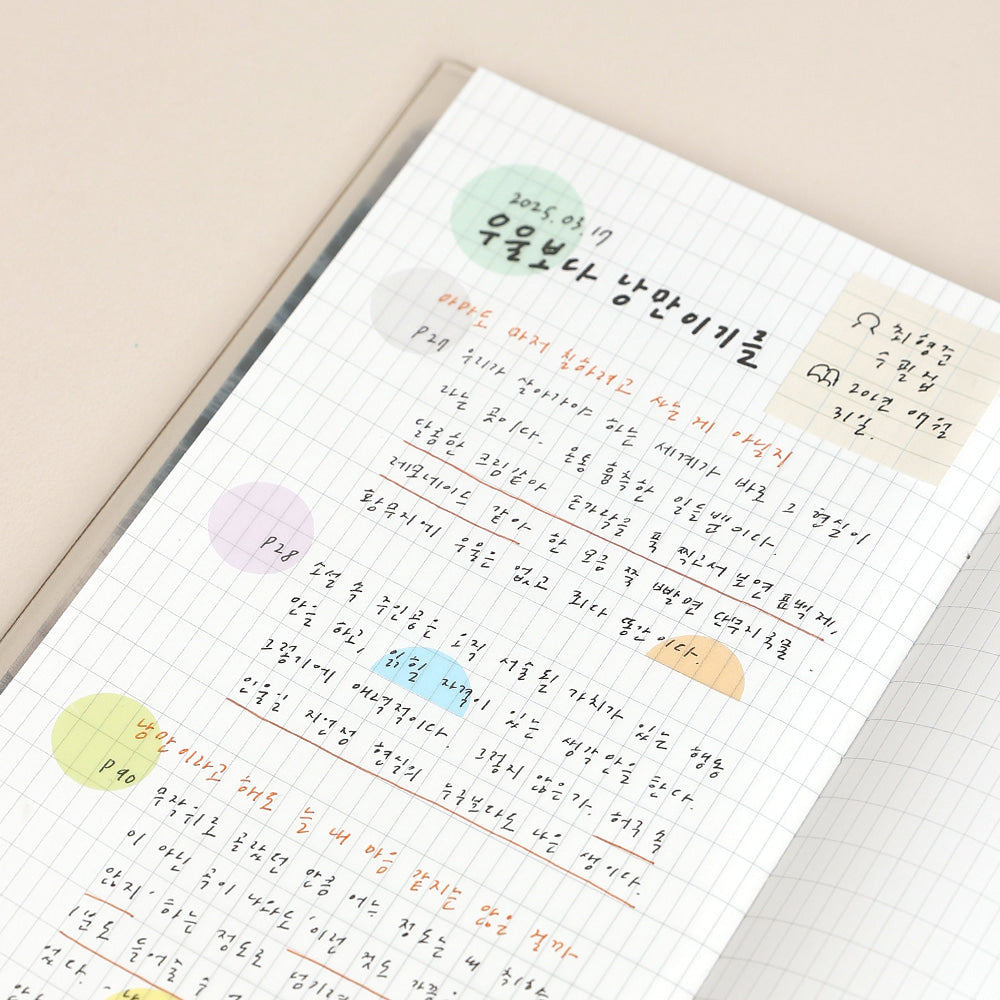 2025.03.17
우울보다 낭만이기를
최형준
수필집
2022년 07월
31일.
아마도 마저 칠하려고 사는 게 아닐지
P27 우리가 살아가야 하는 세계가 바로 그 현실이
라는 곳이다. 온통 흉측한 일들뿐이다.
달콤한 크림같아 손가락을 푹 찍고서 보면 표백제,
레모네이드 같아 한 모금 쭉 빨면 대부지 흙물.
황무지에 우울은 없고 죄다 똥간이다.
P28
소설 속 주인공은 오직 서술될 가치가 있는 행동
만을 하고, 읽힐 자격이 있는 생각만을 한다.
그렇기에 매력적이다. 그렇지 않은가. 허구 속
인물일지언정 현실의 누구보다도 나은 생이다.
낭만이라고 해도 늘 내 마음 같지는 않을 걸까
P90
무작위로 골랐던 만큼 어느 정도는 내 취향
이 아닌 곡이 나와도 '이런 것도 가끔
않지' 하는 정도로 넘기려
1분도 들어줄 수
었다.